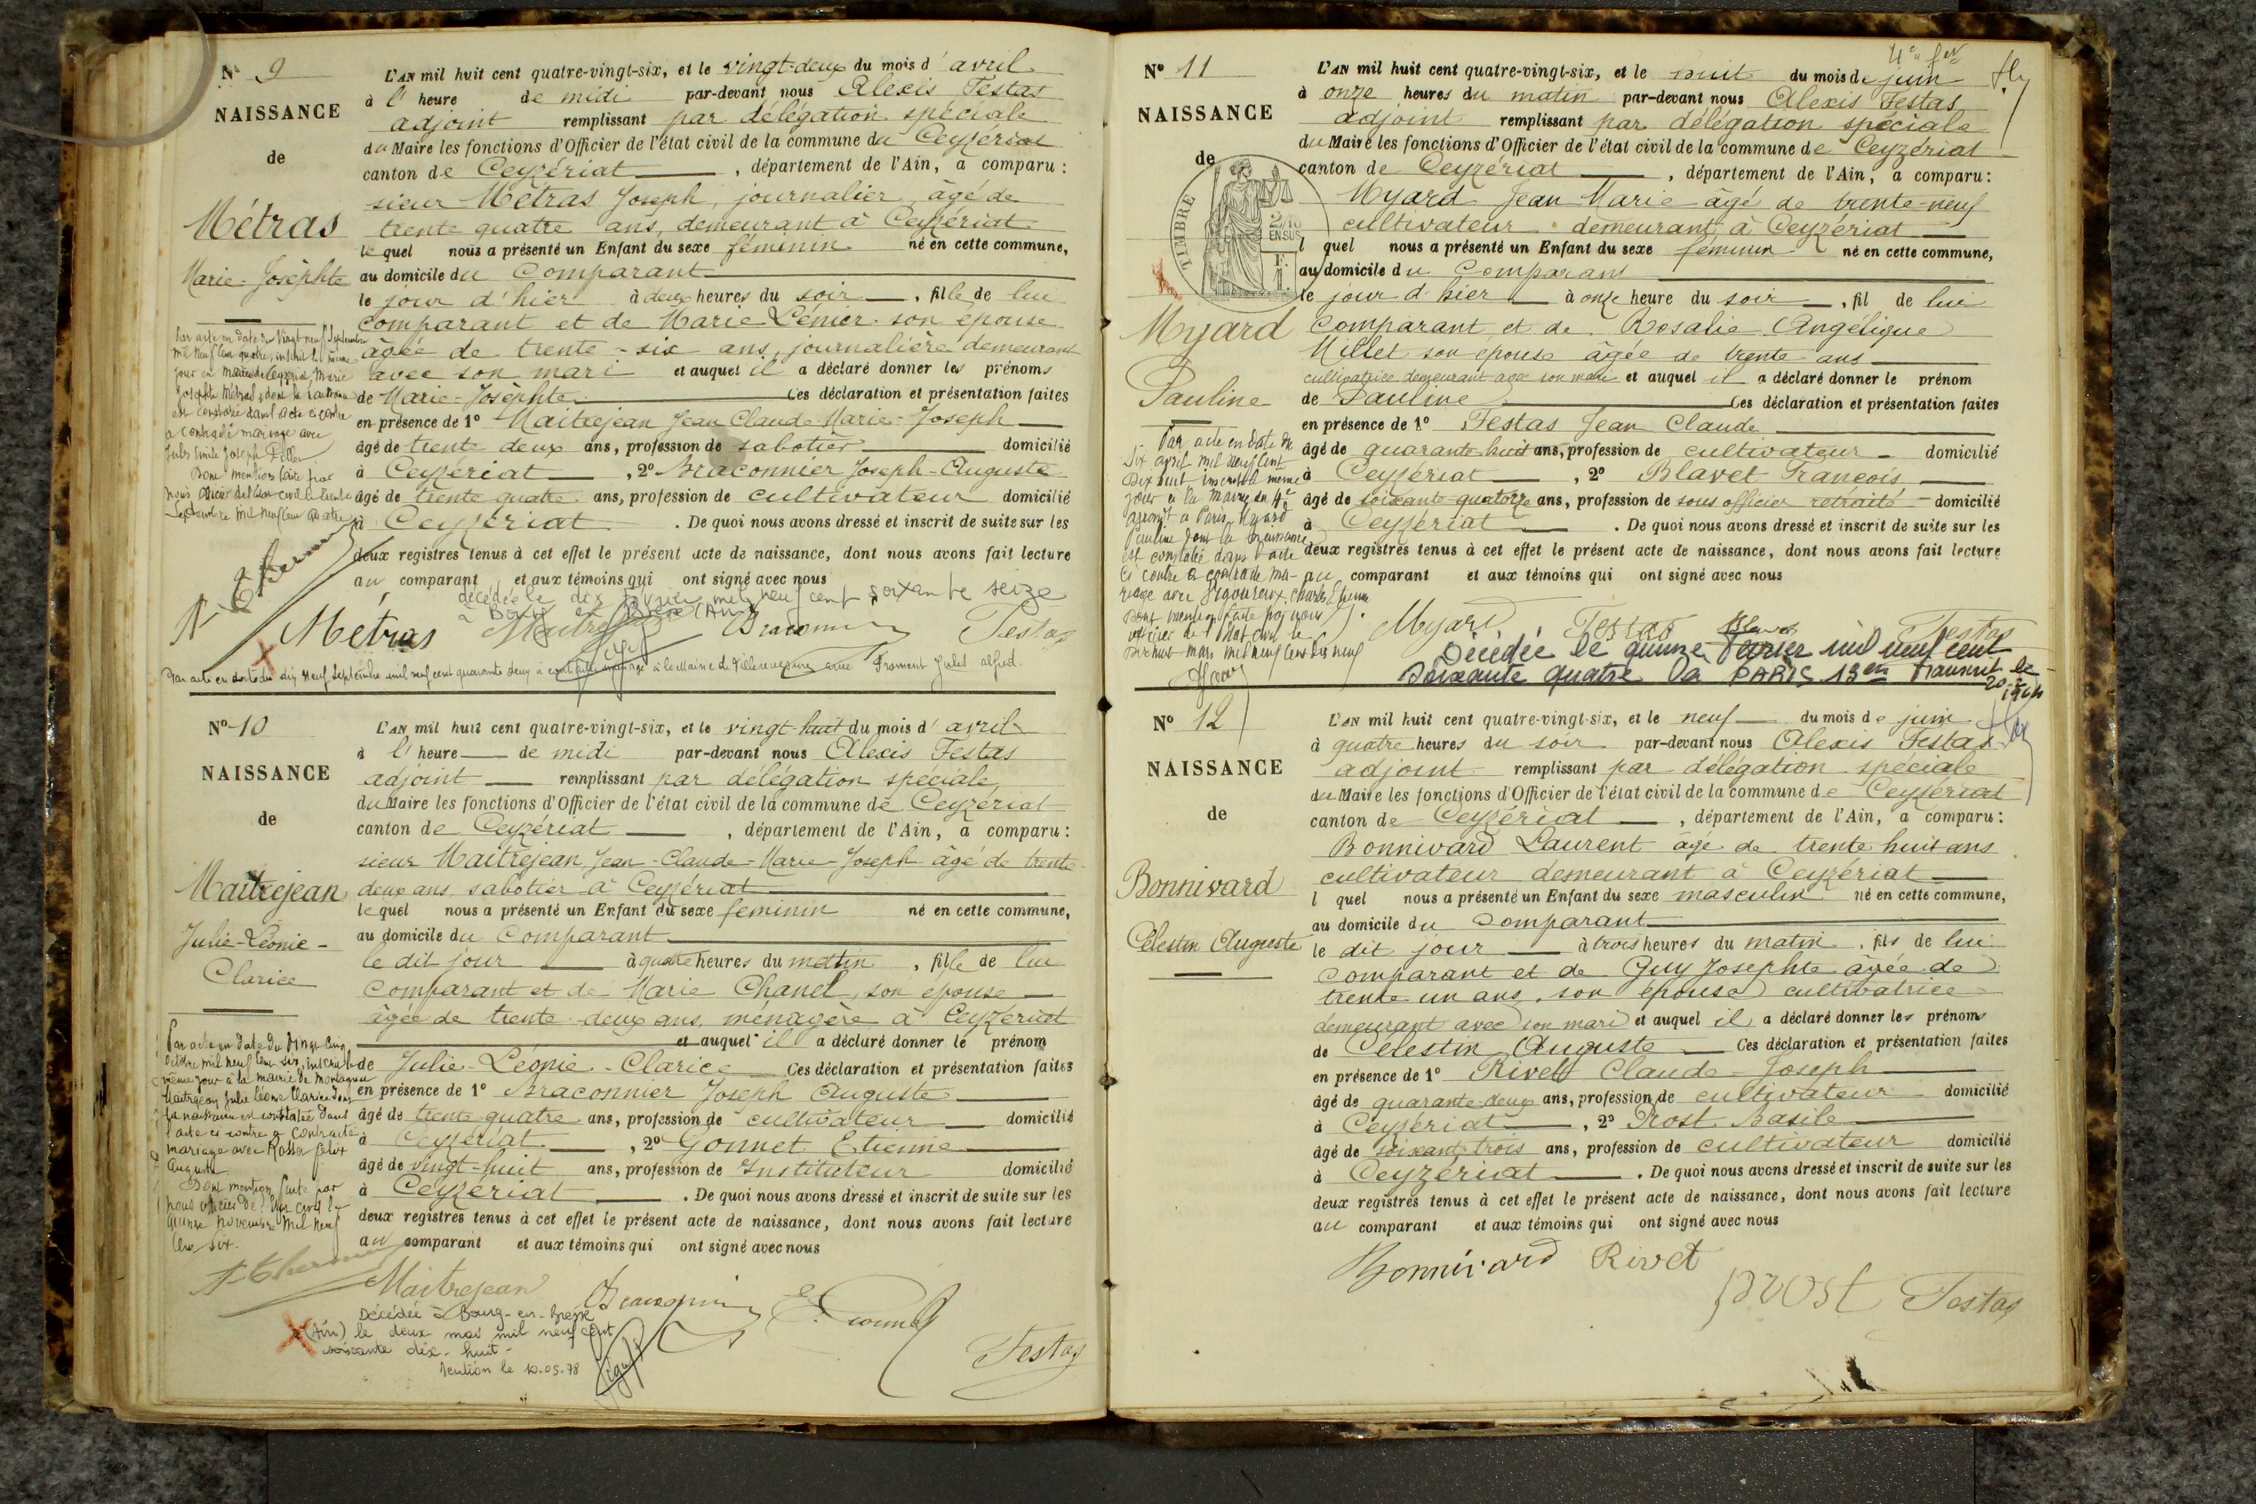 N° 9
NAISSANCE
de
Métras
Marie-Josèphte
L'AN mil huit cent quatre-vingt-six, et le vingt-deux du mois d'avril
à l'heure de midi par-devant nous Alexis Festas
adjoint remplissant par délégation spéciale
du Maire les fonctions d'Officier de l'état civil de la commune du Ceyzériat
canton de Ceyzériat, département de l'Ain, a comparu :
sieur Métras Joseph, journalier âgé de
trente quatre ans, demeurant à Ceyzériat
lequel nous a présenté un Enfant du sexe féminin né en cette commune,
au domicile du Comparant
le jour d'hier à deux heures du soir, fille de lui
comparant et de Marie son épouse
âgée de trente-six ans, journalière demeurant
avec son mari et auquel il a déclaré donner les prénoms
de Marie-Josèphte Ces déclaration et présentation faites
en présence de 1° Maitrejean Jean Claude Marie-Joseph
âgé de trente deux ans, profession de sabotier domicilié
à Ceyzériat, 2° Braconnier Joseph-Auguste
âgé de trente quatre ans, profession de cultivateur domicilié
à Ceyzériat. De quoi nous avons dressé et inscrit de suite sur les
deux registres tenus à cet effet le présent acte de naissance, dont nous avons fait lecture
au comparant et aux témoins qui ont signé avec nous
Par acte en date du vingt-neuf Septembre
mil neuf cent quatre, inscrit le même
jour en Mairie de Ceyzériat, Marie
Josèphte Métras, dont la naissance
est constatée dans l'acte ci-contre
a contracté mariage avec
Jules Emile Joseph
Dont mention faite par
nous Officier de l'état civil le trente
Septembre mil neuf cent quatre
décédée le dix février mil neuf cent soixante seize
à Bourg en Bresse (Ain)
Métras Maitrejean Braconnier Festas
Par acte en date du dix neuf Septembre mil neuf cent quarante deux a contracté mariage à la Mairie de Villereversure avec Froment Jules Alfred.
N° 10
NAISSANCE
de
Maitrejean
Julie-Léonie-
Clarice
L'AN mil huit cent quatre-vingt-six, et le vingt-huit du mois d'avril
à l'heure de midi par-devant nous Alexis Festas
adjoint remplissant par délégation spéciale
du Maire les fonctions d'Officier de l'état civil de la commune de Ceyzériat
canton de Ceyzériat, département de l'Ain, a comparu :
sieur Maitrejean Jean-Claude-Marie-Joseph âgé de trente-
deux ans sabotier à Ceyzériat
lequel nous a présenté un Enfant du sexe feminin né en cette commune,
au domicile du Comparant
le dit jour à quatre heures du matin, fille de lui
comparant et de Marie Chanel, son épouse
âgée de trente-deux ans, ménagère à Ceyzériat
et auquel il a déclaré donner le prénom
de Julie-Léonie-Clarice Ces déclaration et présentation faites
en présence de 1° Braconnier Joseph Auguste
âgé de trente quatre ans, profession de cultivateur domicilié
à Ceyzériat, 2° Gonnet Etienne
âgé de vingt-huit ans, profession de Instituteur domicilié
à Ceyzériat. De quoi nous avons dressé et inscrit de suite sur les
deux registres tenus à cet effet le présent acte de naissance, dont nous avons fait lecture
au comparant et aux témoins qui ont signé avec nous
Par acte en date du vingt cinq
Octobre mil neuf cent six, inscrit le
même jour à la mairie de Montagnat
Maitrejean Julie Léonie Clarice dont
la naissance est constatée dans
l'acte ci contre a contracté
mariage avec Félix
Auguste
Dont mention faite par
nous officier de l'Etat civil le
quinze novembre mil neuf
cent six.
Maitrejean Braconnier E. Gonnet
Festas
Décédée à Bourg-en-Bresse
(Ain) le deux mai mil neuf cent
soixante dix-huit-
Mention le 10.05.78
N° 11
NAISSANCE
de
TIMBRE
2/10
EN SUS
Myard
Pauline
L'AN mil huit cent quatre-vingt-six, et le huit du mois de juin
à onze heures du matin par-devant nous Alexis Festas
adjoint remplissant par délégation spéciale
du Maire les fonctions d'Officier de l'état civil de la commune de Ceyzériat
canton de Ceyzériat, département de l'Ain, a comparu :
Myard Jean Marie âgé de trente-neuf
cultivateur demeurant à Ceyzériat
l quel nous a présenté un Enfant du sexe féminin né en cette commune,
au domicile du Comparant
le jour d'hier à onze heure du soir, fil de lui
comparant et de Rosalie Angélique
Millet son épouse âgée de trente ans
cultivatrice demeurant avec son mari et auquel il a déclaré donner le prénom
de Pauline Ces déclaration et présentation faites
en présence de 1° Festas Jean Claude
âgé de quarante huit ans, profession de cultivateur domicilié
à Ceyzériat, 2° Blavet François
âgé de soixante-quatorze ans, profession de sous officier retraité domicilié
à Ceyzériat. De quoi nous avons dressé et inscrit de suite sur les
deux registres tenus à cet effet le présent acte de naissance, dont nous avons fait lecture
au comparant et aux témoins qui ont signé avec nous
Par acte en date du
dix avril mil neuf cent
dix huit inscrit le même
jour à la Mairie du 4e
arront à Paris, Myard
Pauline dont la naissance
est constatée dans l'acte
ci contre a contracté ma-
riage avec Vigoureux Charles Etienne
Dont mention faite par nous
officier de l'Etat civil le
mars mil neuf cent dix neuf
Myard Festas Blavet Festas
Décédée le quinze février mil neuf cent
soixante quatre à PARIS 13em transcrit le
20-2-1964
N° 12
NAISSANCE
de
Bonnivard
Célestin Auguste
L'AN mil huit cent quatre-vingt-six, et le neuf du mois de juin
à quatre heures du soir par-devant nous Alexis Festas
adjoint remplissant par délégation spéciale
du Maire les fonctions d'Officier de l'état civil de la commune de Ceyzériat
canton de Ceyzériat, département de l'Ain, a comparu :
Bonnivard Laurent âgé de trente huit ans
cultivateur demeurant à Ceyzériat
l quel nous a présenté un Enfant du sexe masculin né en cette commune,
au domicile du Comparant
le dit jour à trois heures du matin, fils de lui
comparant et de Guy Josephte âgée de
trente un ans, son épouse cultivatrice
demeurant avec son mari et auquel il a déclaré donner les prénoms
de Célestin Auguste Ces déclaration et présentation faites
en présence de 1° Rivet Claude-Joseph
âgé de quarante-deux ans, profession de cultivateur domicilié
à Ceyzériat, 2° Prost Basile
âgé de soixante trois ans, profession de cultivateur domicilié
à Ceyzériat. De quoi nous avons dressé et inscrit de suite sur les
deux registres tenus à cet effet le présent acte de naissance, dont nous avons fait lecture
au comparant et aux témoins qui ont signé avec nous
Bonnivard Rivet
prost Festas